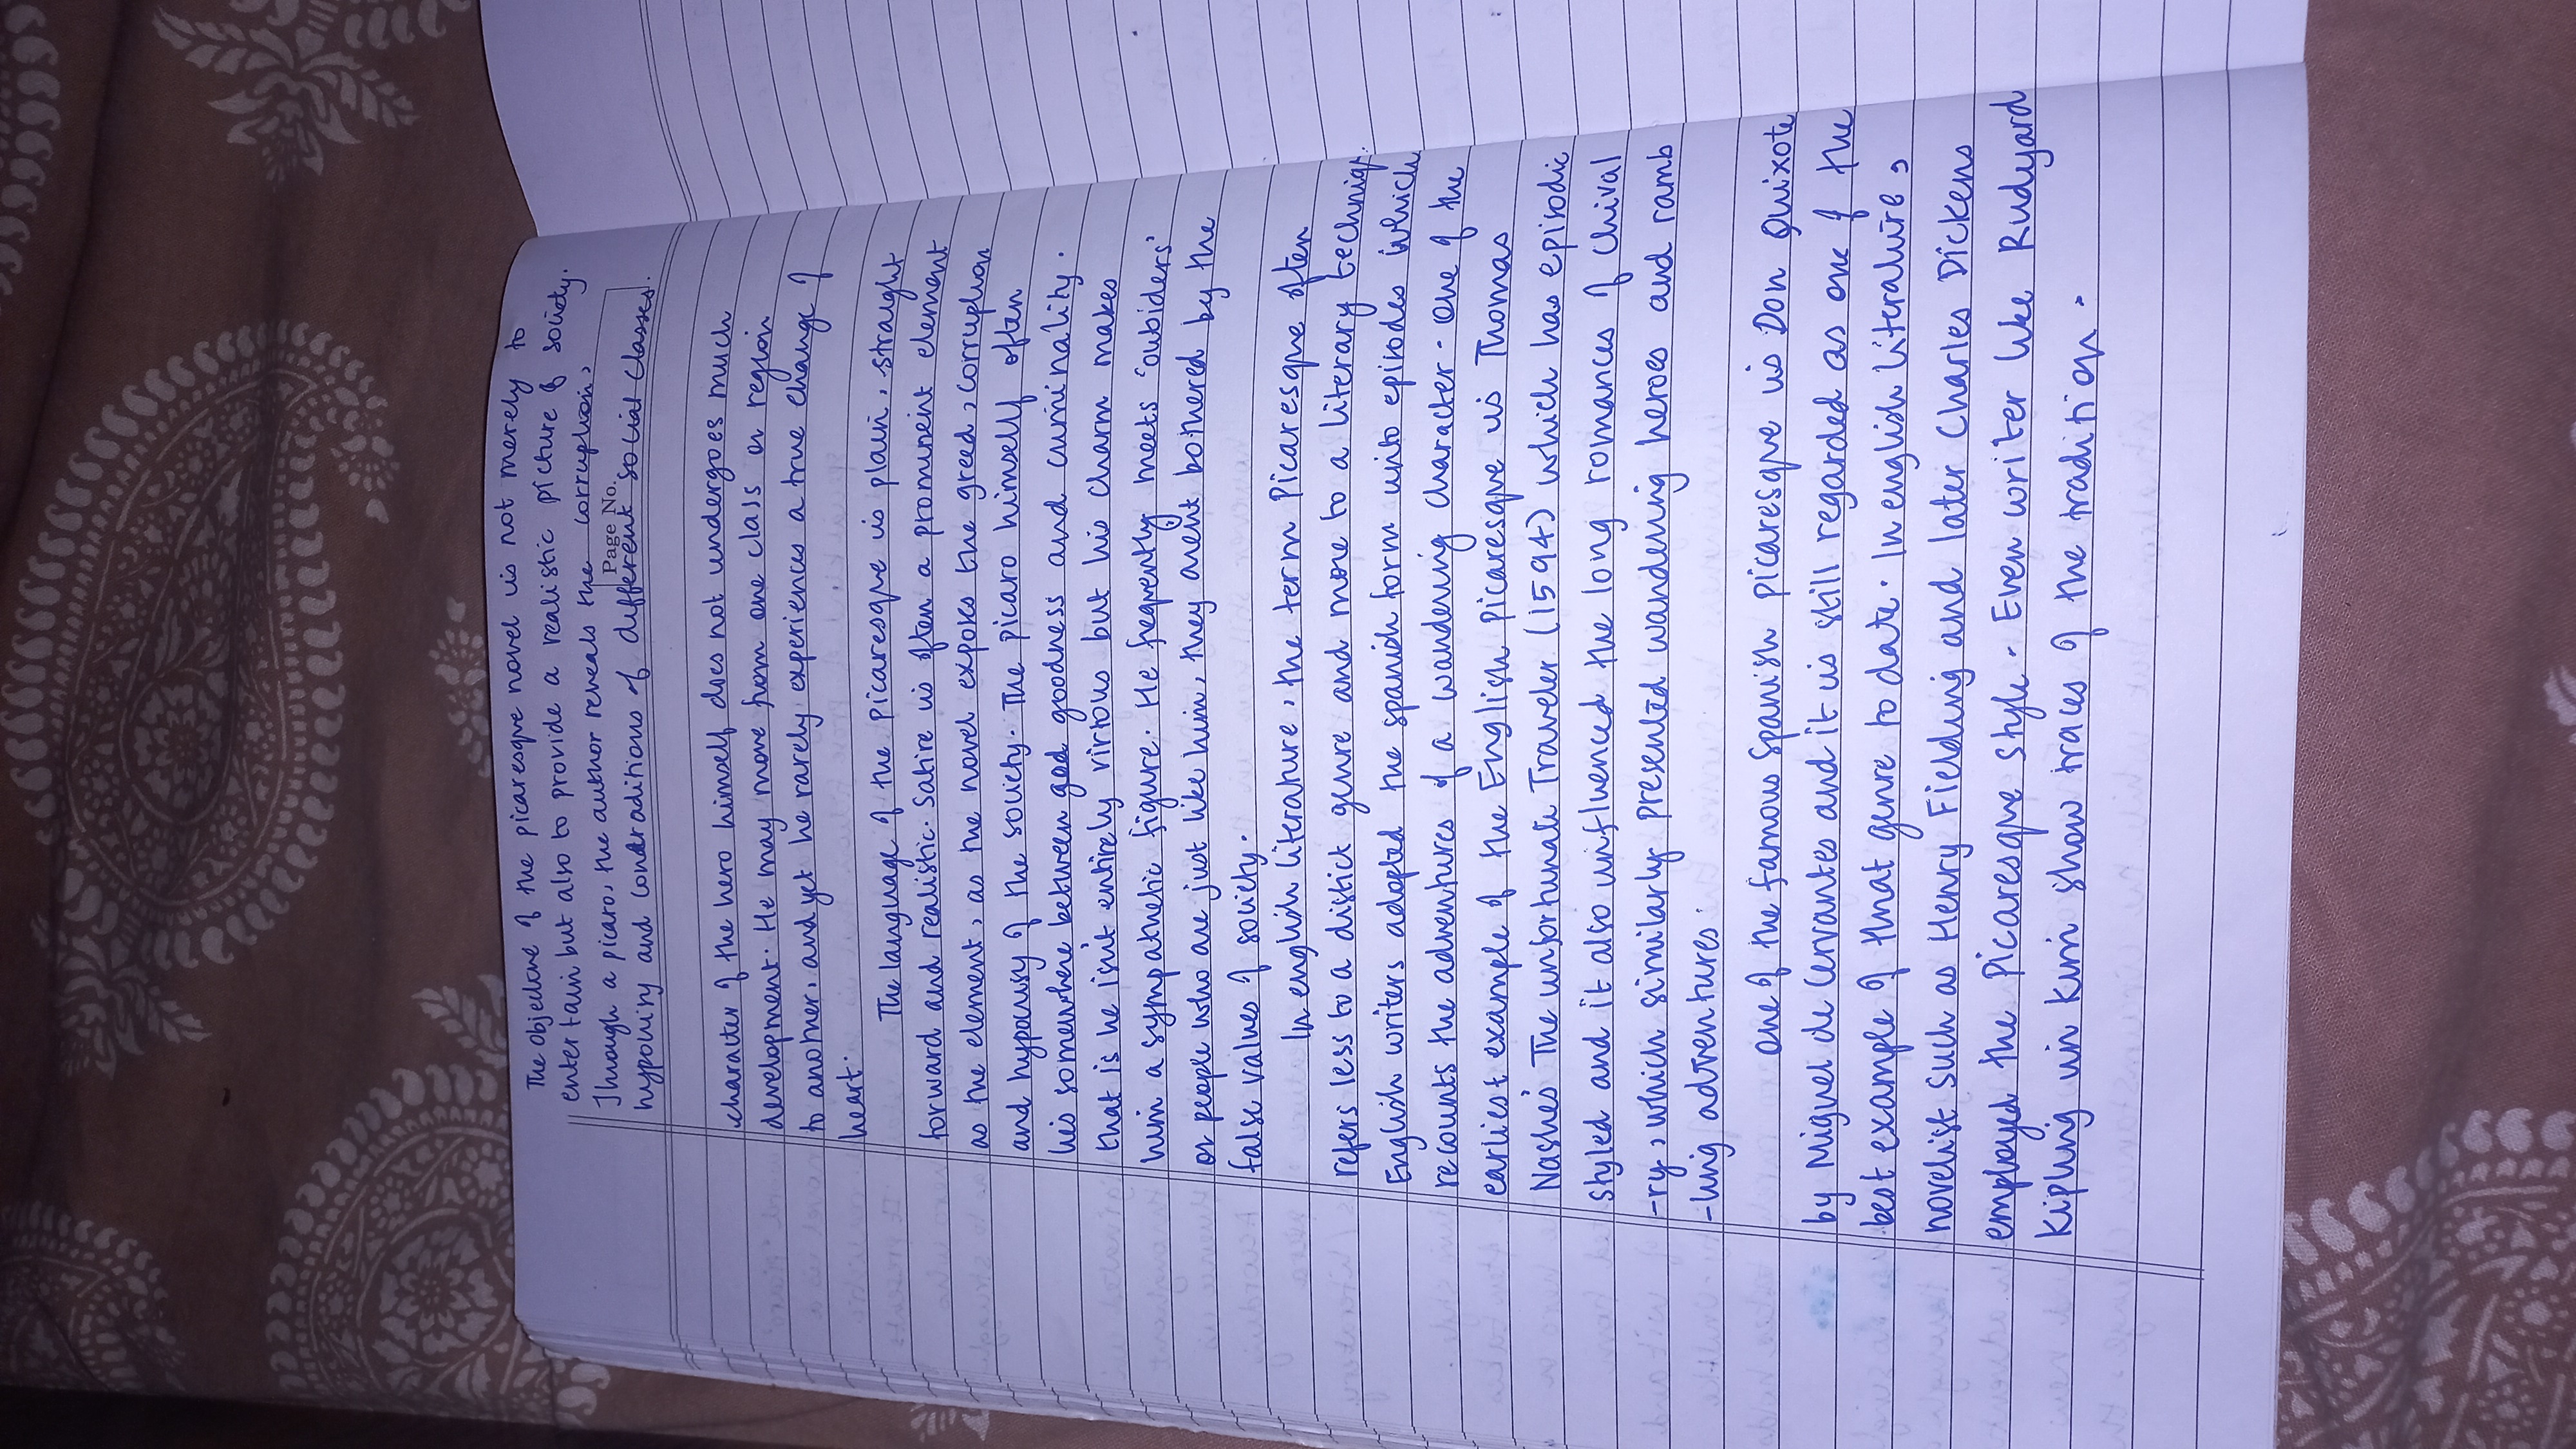 The objective of the picaresque novel is not merely to
entertain but also to provide a realistic picture of society.
Through a picaro, the author reveals the corruption,
Page No.
hypocrisy and contradictions of different social classes.
character of the hero himself does not undergoes much
development. He may move from one class or region
to another, and yet he rarely experiences a true change of
heart.
The language of the picaresque is plain, straight
forward and realistic. Satire is often a prominent element
as the element, as the novel exposes the greed, corruption
and hypocrisy of the society. The picaro himself often
lies somewhere between god goodness and criminality.
that is he isn't entirely virtious but his charm makes
him a sympathetic figure. He freqwently meets 'outsiders'
or people who are just like him, they arent bothered by the
false values of society.
In english literature, the term Picaresque often
refers less to a distict genre and more to a literary techniq.
English writers adopted the spanish form into episodes which
recounts the adventures of a wandering character. One of the
earliest example of the English picaresque is Thomas
Nashe's The unfortunate Traveler (1594) which has episodic
styled and it also influenced the long romances of chival
-ry, which similarly presented wandering heroes and ramb
-ling adventures.
One of the famous Spanish picaresque is Don Quixote
by Miguel de Cervantes and it is still regarded as one of the
best example of that genre to date. In english literature,
novelist such as Henry Fielding and later Charles Dickens
employed the Picaresque style. Even writer like Rudyard
Kipling in Kim show traces of the tradition.